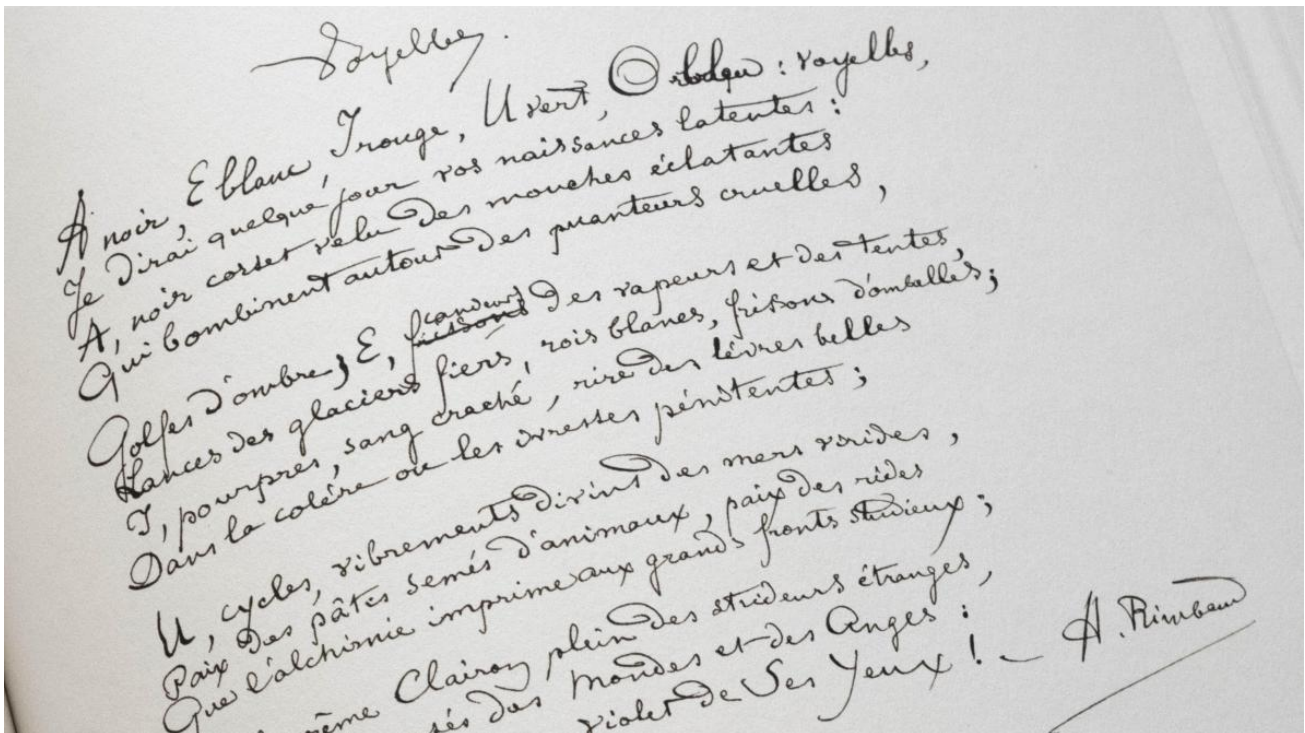 Voyelles.
A noir, E blanc, I rouge, U vert, O bleu : voyelles,
Je dirai quelque jour vos naissances latentes :
A, noir corset velu des mouches éclatantes
Qui bombinent autour des puanteurs cruelles,
Golfes d'ombre ; E, frissons candeurs des vapeurs et des tentes,
Lances des glaciers fiers, rois blancs, frissons d'ombelles ;
I, pourpres, sang craché, rire des lèvres belles
Dans la colère ou les ivresses pénitentes ;
U, cycles, vibrements divins des mers virides,
Paix des pâtis semés d'animaux, paix des rides
Que l'alchimie imprime aux grands fronts studieux ;
Clairon plein des strideurs étranges,
des Mondes et des Anges :
violet de Ses Yeux ! —
A. Rimbaud